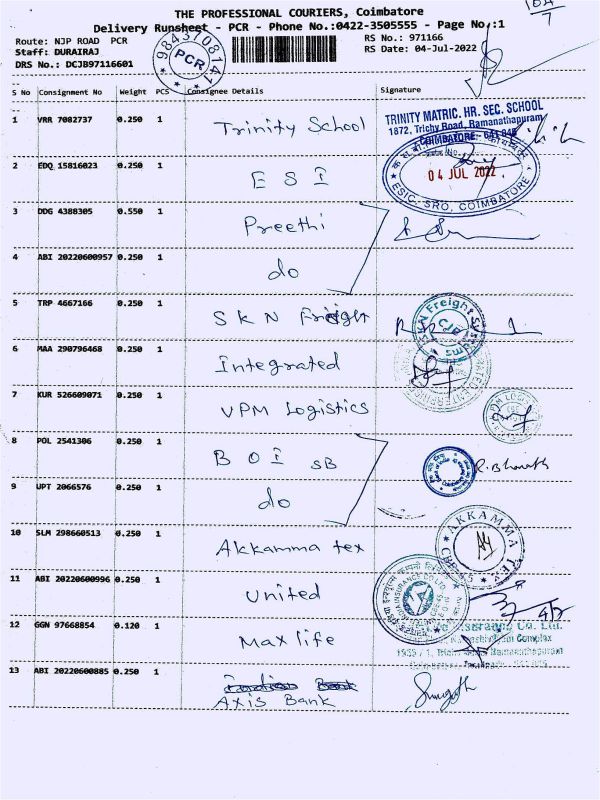 THE PROFESSIONAL COURIERS, Coimbatore
Delivery Runsheet - PCR - Phone No.:0422-3505555 - Page No.:1
Route: NJP ROAD PCR
RS No.: 971166
Staff: DURAIRAJ
RS Date: 04-Jul-2022
DRS No.: DCJB97116601
9843708141
PCR
S No Consignment No Weight PCS Consignee Details Signature
1 VRR 7082737 0.250 1 Trinity School
TRINITY MATRIC. HR. SEC. SCHOOL
1872, Trichy Road, Ramanathapuram
COIMBATORE - 641 045
2 EDQ 15816023 0.250 1 E S I
04 JUL 2022
ESIC, SRO, COIMBATORE
3 DDG 4388305 0.550 1 Preethi
4 ABI 20220600957 0.250 1 do
5 TRP 4667166 0.250 1 S K N Freight
SKN Freight Systems
6 MAA 290796468 0.250 1 Integrated
7 KUR 526609071 0.250 1 VPM Logistics
8 POL 2541306 0.250 1 B O I SB
R. Bharath
9 UPT 2066576 0.250 1 do
10 SLM 298660513 0.250 1 Akkamma tex
AKKAMMA TEX
11 ABI 20220600996 0.250 1 United
12 GGN 97668854 0.120 1 Max life
Complex
Ramanathapuram
13 ABI 20220600885 0.250 1 Indian Bank
Axis Bank